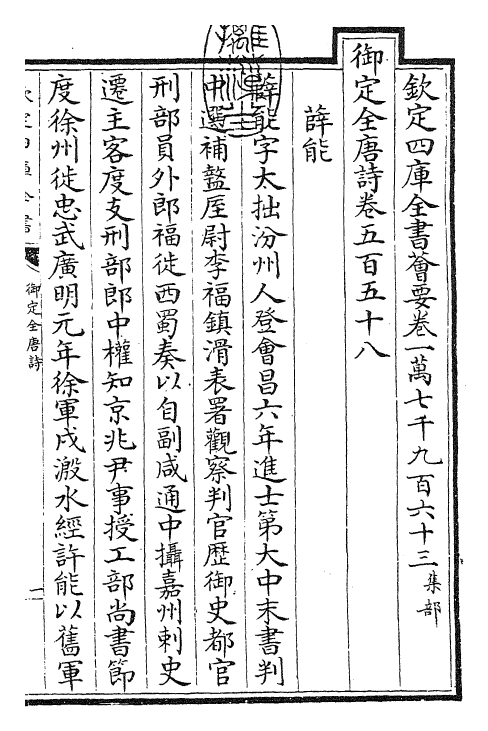 欽定四庫全書薈要卷一萬七千九百六十三 集部
御定全唐詩卷五百五十八
薛能
薛能字太拙汾州人登會昌六年進士第大中末書判
中選補盩厔尉李福鎮滑表署觀察判官歴御史都官
刑部員外郎福徙西蜀奏以自副咸通中攝嘉州刺史
遷主客度支刑部郎中權知京兆尹事授工部尚書節
度徐州徙忠武廣明元年徐軍戍溵水經許能以舊軍
御定全唐詩
一